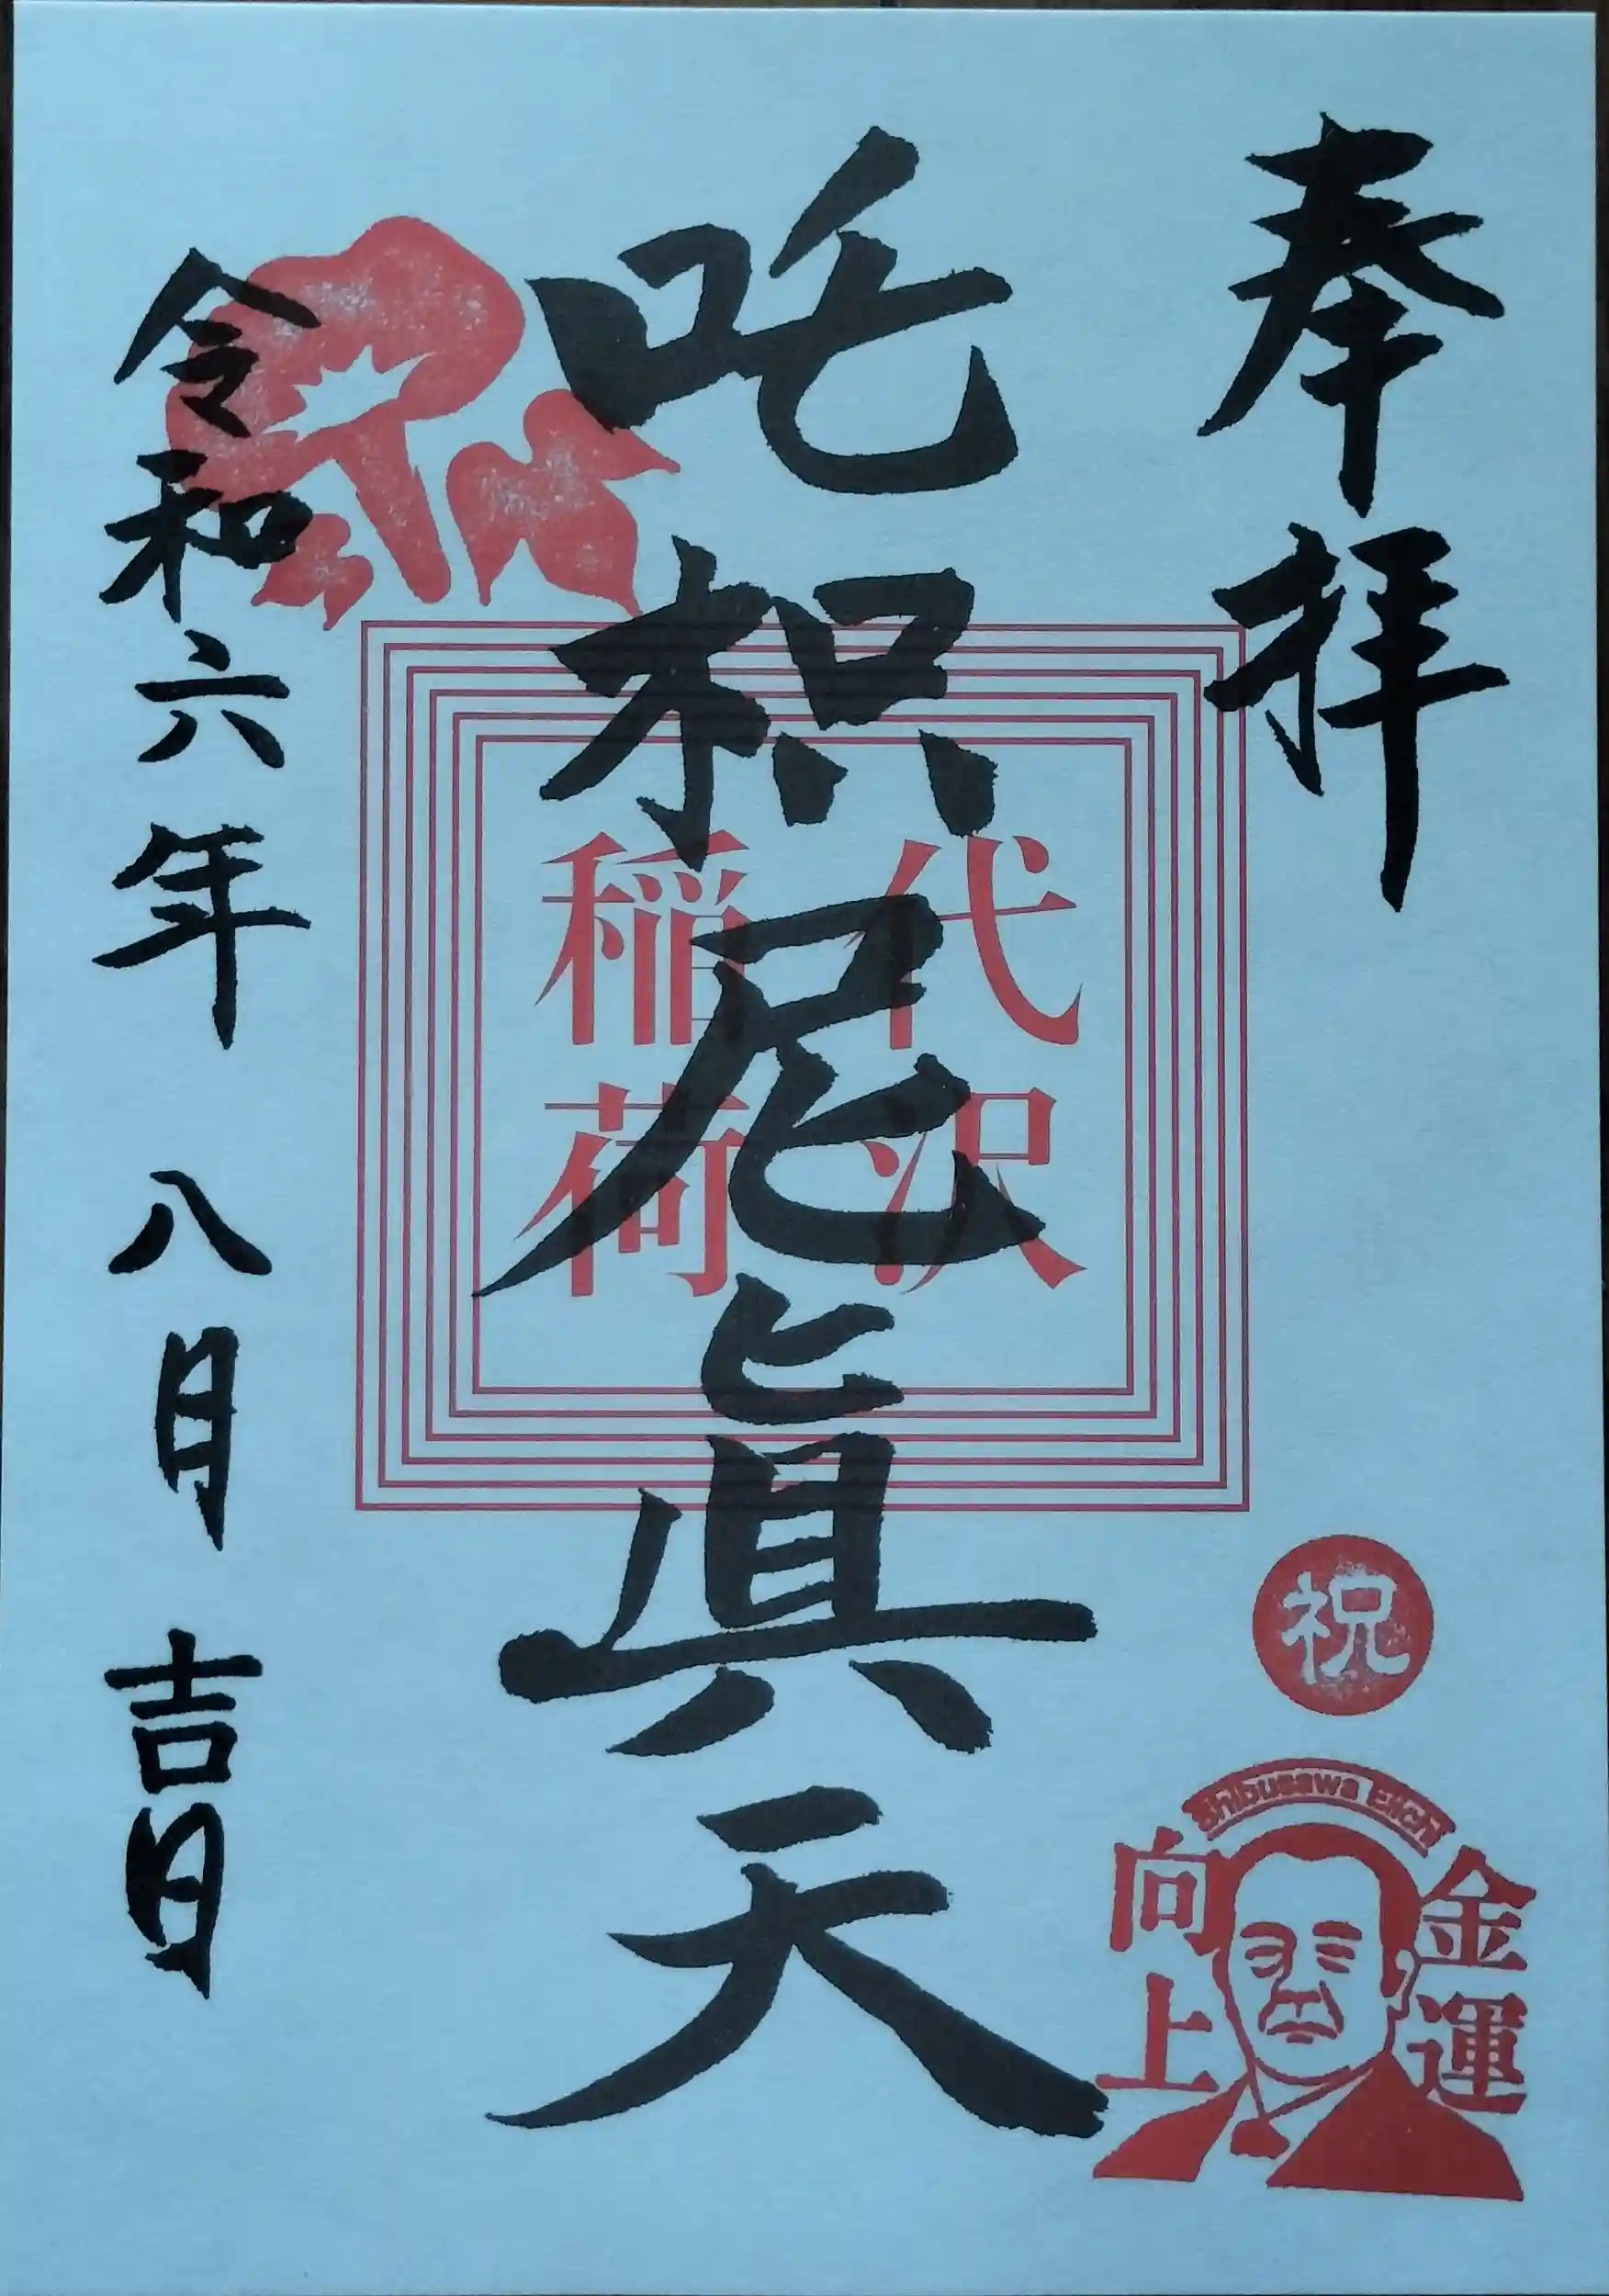 奉拝
吒枳尼眞天
代沢
稲荷
令和六年 八月 吉月
祝
Shibusawa Eiichi
金運
向上